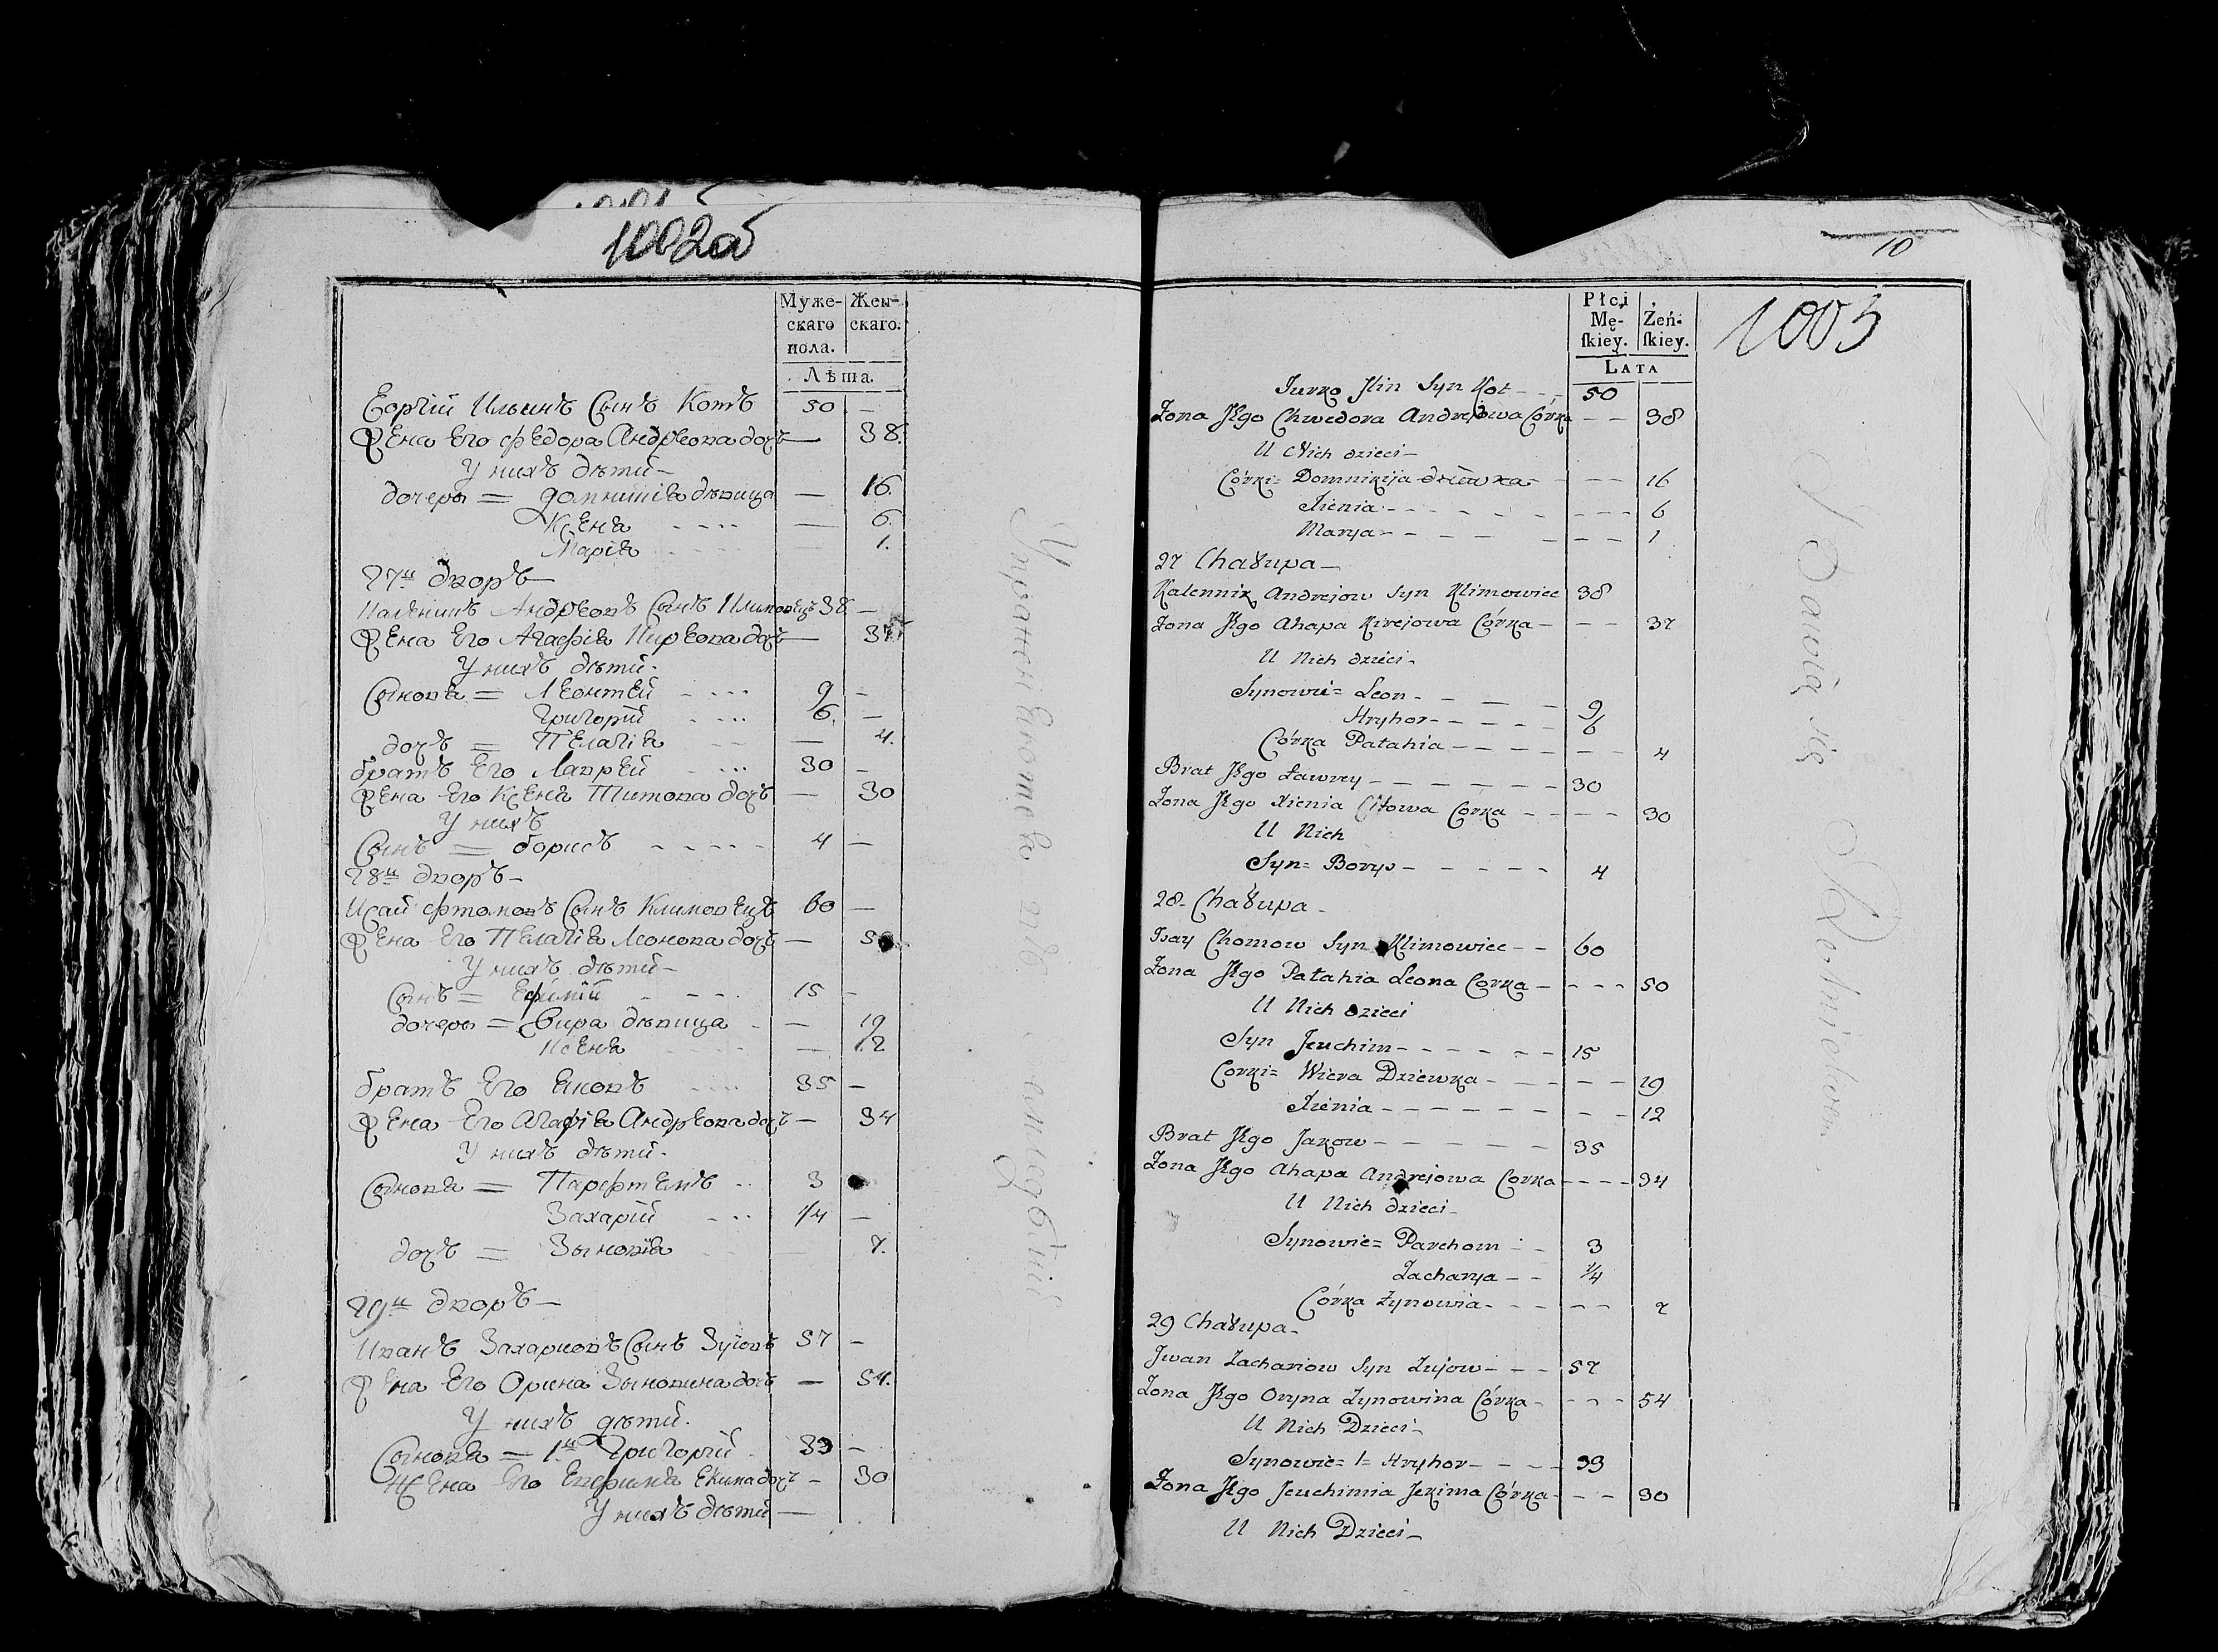 1002об
Муже-
скаго
пола.
Жен-
скаго.
Лѣта.
Еоргій Ильинъ Сынъ Котъ 50 —
Жена Его Федора Андрѣева дочь — 38.
У нихъ дѣти —
дочеры = домникія дѣвица — 16.
Ксеня — 6.
Марія — 1.
27й дворъ —
Каленикъ Андрѣевъ Сынъ Климовецъ 38. —
Жена Его Агафія Кирѣева дочь — 37
У нихъ дѣти.
Сыновя = Леонтей 9 —
Григорій 6. —
дочь = Пелагія — 4.
братъ Его Лаврей 30 —
Жена Его Ксеня Титова дочь — 30
У нихъ
Сынъ = борисъ 4 —
28й дворъ —
Исай Фтомовъ Сынъ Климовецъ 60 —
Жена Его Пелагія Леонова дочь —
У нихъ дѣти —
Сынъ = Ефимій 15 —
дочеры = Вира дѣвица — 19
Ксеня — 12
братъ Его Яковъ 35 —
Жена Его Агафія Андрѣева дочь — 34
У нихъ дѣти.
Сыновя = Парфтемъ 3
Захарій 1/4 —
дочь = Зыновія 7.
29й дворъ —
Иванъ Захариовъ Сынъ Зуіовъ 57 —
Жена Его Орина Зыновина дочь — 54.
У нихъ дѣти.
Сыновя = 1й Григорій 33 —
Жена Его Евфимія Екима дочь — 30
У нихъ дѣти —
10
1003
Płci
Mę-
ſkiey.
Żeń-
ſkiey.
LATA
Jurko Jlin Syn Kot — 50
Żona Jego Chwedora Andrejowa Córka — — 38
U Nich dzieci —
Córki = Domnikija dziewka — — 16
Xienia — — 6
Marya — — 1
27 Chałupa —
Kalennik Andrejow Syn Klimowiec 38
Żona Jego Ahapa Kirejowa Córka — — 37
U Nich dzieci —
Synowie = Leon — — 9
Hryhor — — 6
Córka Pałahia — — 4
Brat Jego Ławrey — — 30
Żona Jego Xienia Citowa Córka — — 30
U Nich
Syn = Borys — — 4
28 — Chałupa —
Isay Chomow Syn Klimowiec — — 60
Żona Jego Pałahia Leona Corka — — 50
U Nich dzieci
Syn Jeuchim — — 15
Corki = Wiera Dziewka — — 19
Xienia — — 12
Brat Jego Jakow — — 35
Żona Jego Ahapa Andrejowa Corka — — 34
U Nich dzieci —
Synowie = Parchom — — 3
Zacharya — — 1/4
Córka Zynowia — — 7
29 Chałupa —
Jwan Zachariow Syn Zujow — — 57
Żona Jego Oryna Zynowina Córka — — 54
U Nich Dzieci —
Synowie = 1 = Hryhor — — 33
Żona Jego Jeuchimia Jekima Córka — — 30
U Nich Dzieci —